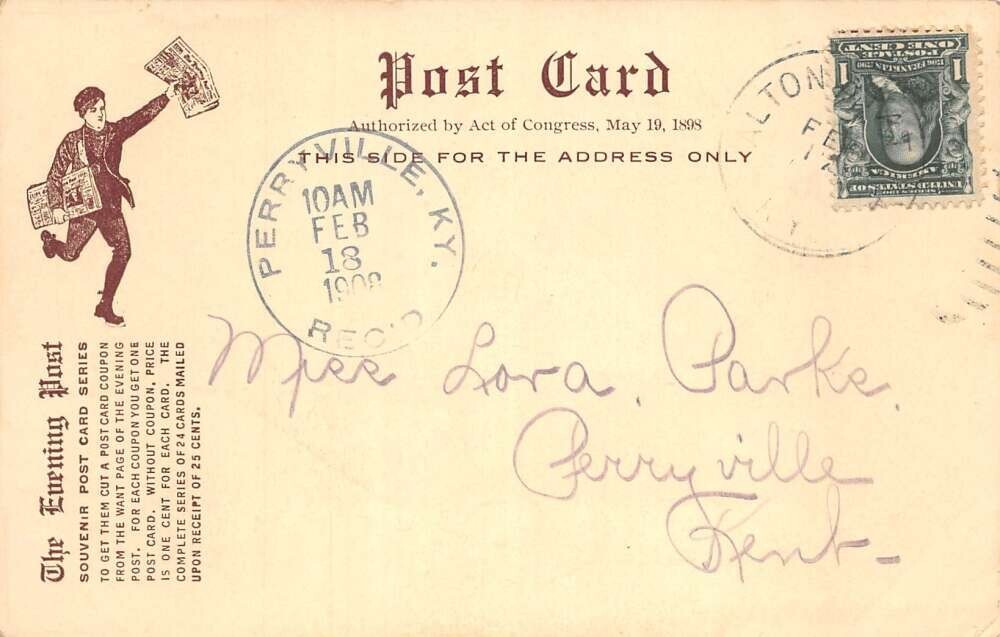 Post Card
Authorized by Act of Congress, May 19, 1898
THIS SIDE FOR THE ADDRESS ONLY
PERRYVILLE, KY.
10AM
FEB
18
1908
REC'D
ALTON
FEB
KY
ONE CENT
POSTAGE
FRANKLIN
1 1
UNITED STATES OF
AMERICA
Miss Lora Parks
Perryville
Kent-
The Evening Post
SOUVENIR POST CARD SERIES
TO GET THEM CUT A POST CARD COUPON
FROM THE WANT PAGE OF THE EVENING
POST. FOR EACH COUPON YOU GET ONE
POST CARD. WITHOUT COUPON, PRICE
IS ONE CENT FOR EACH CARD. THE
COMPLETE SERIES OF 24 CARDS MAILED
UPON RECEIPT OF 25 CENTS.